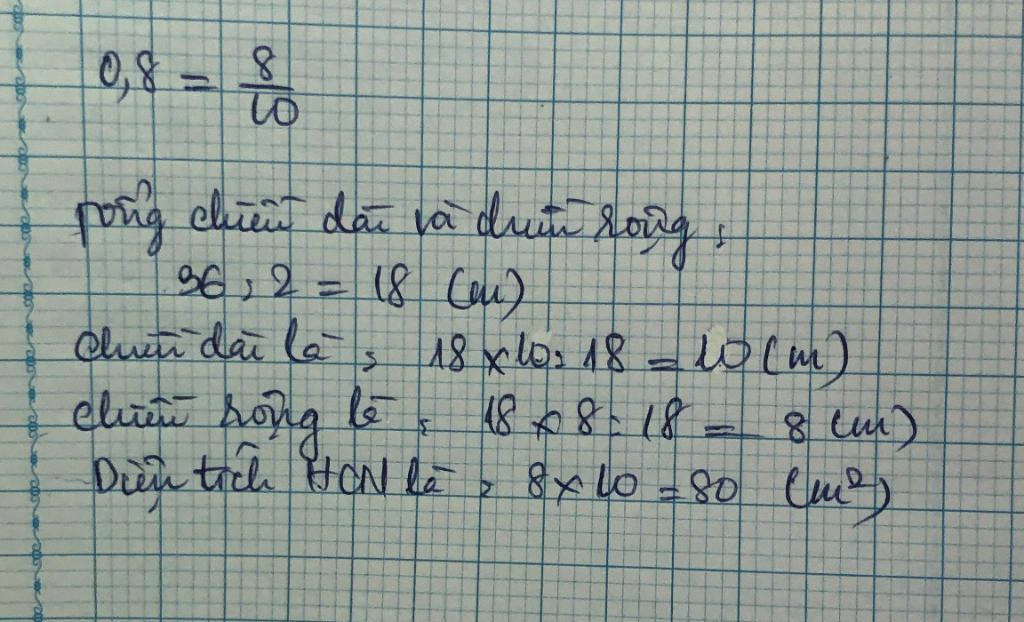 0,8 = 8/10
Tổng chiều dài và chiều rộng :
36 : 2 = 18 (m)
Chiều dài là : 18 x 10 : 18 = 10 (m)
Chiều rộng là : 18 x 8 : 18 = 8 (m)
Diện tích HCN là : 8 x 10 = 80 (m²)